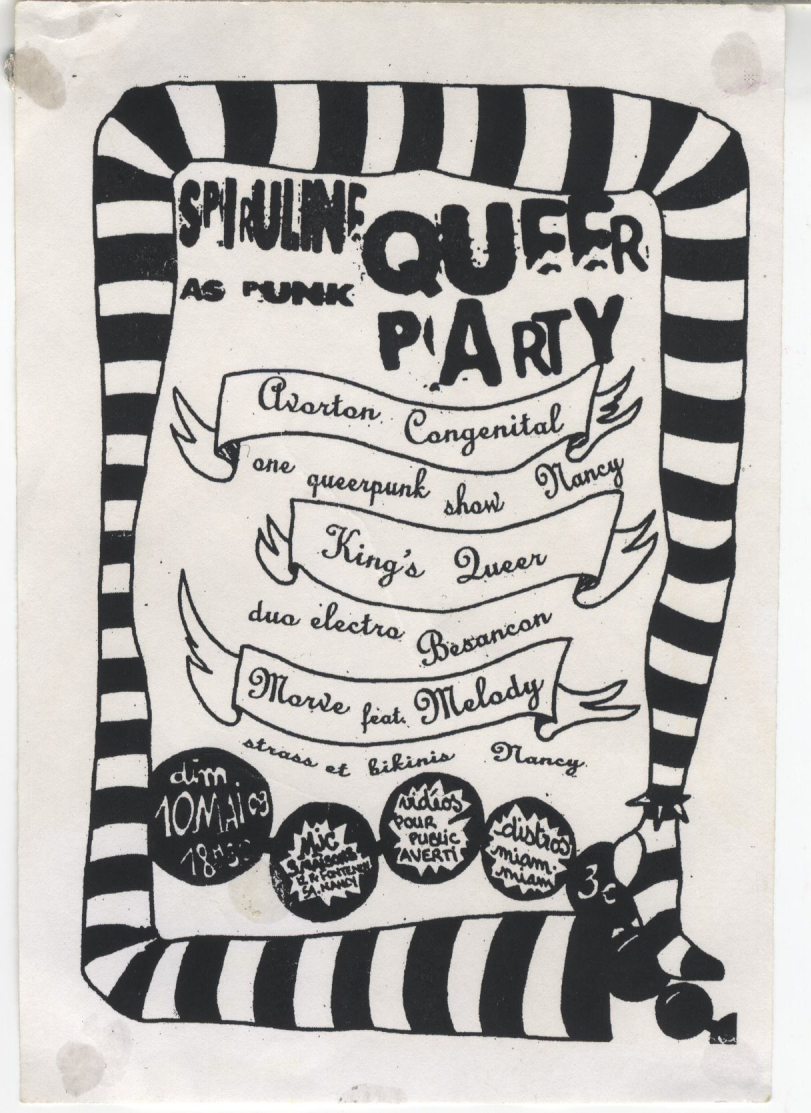 SPIRULINE
AS PUNK
QUEER
PARTY
Avorton Congenital
one queerpunk show Nancy
King's Queer
duo electro Besancon
Morve feat. Melody
strass et bikinis Nancy
dim
10 MAI 09
18H30
MJC
3 MAISONS
12 R. FONTENOY
54. NANCY
vidéos
POUR
PUBLIC
AVERTI
distros
miam-
miam
3€